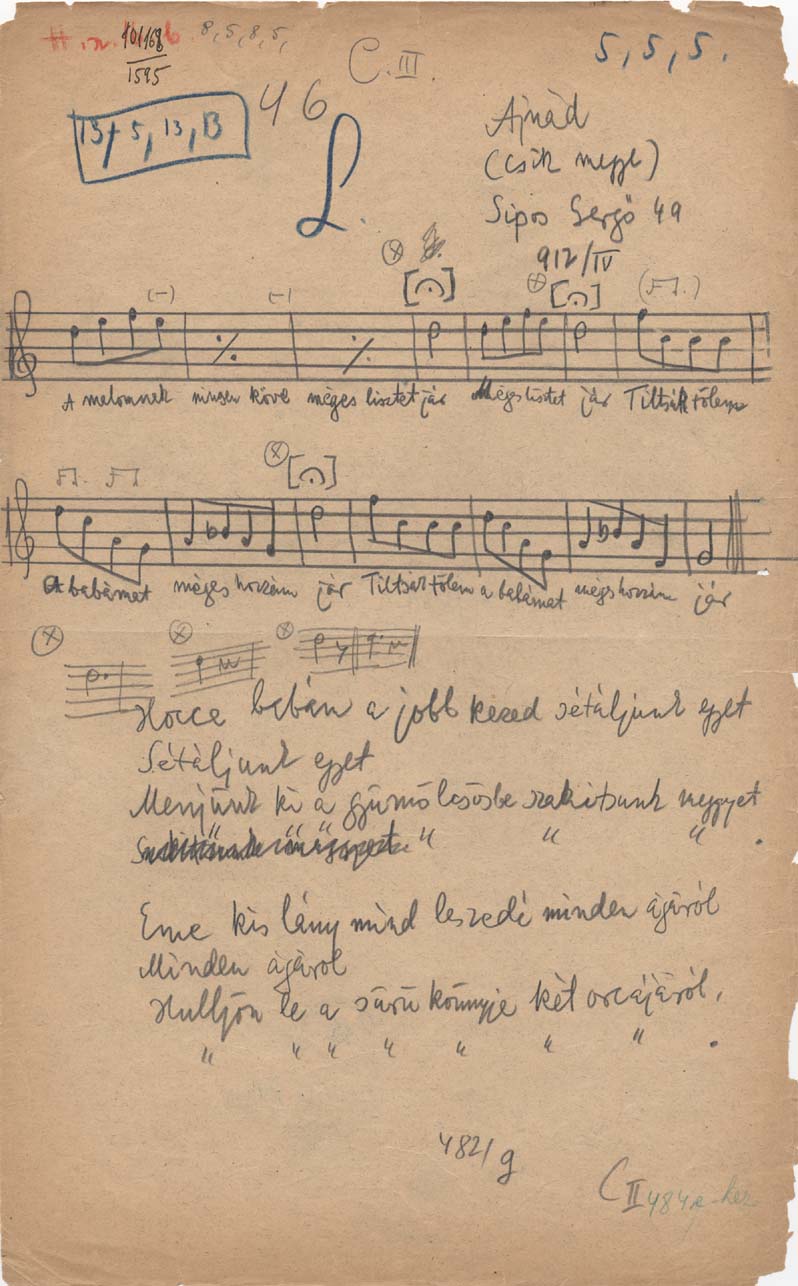 101168
1595
8, 5, 8, 5,
C. III.
5, 5, 5.
13 + 5, 13, 13
46
L.
Ajnád
(Csík megye)
Sipos Gergő 49
912/IV
A malomnak minden kövel méges lisztet jár Méges lisztet jár Tiltsák tőlem
A babámat méges hozzám jár Tiltsák tőlem a babámat mégis hozzám jár
Hocce babán a jobb kezed sétáljunk egyet
Sétáljunk egyet
Menjünk ki a gyümölcsösbe szakitsunk meggyet
" " " .
Eme kis lány mind leszedé minden ágáról
Minden ágáról
Hulljon le a sürü könnyje két orcájáról.
" " " " " " " .
482/g
C II 484